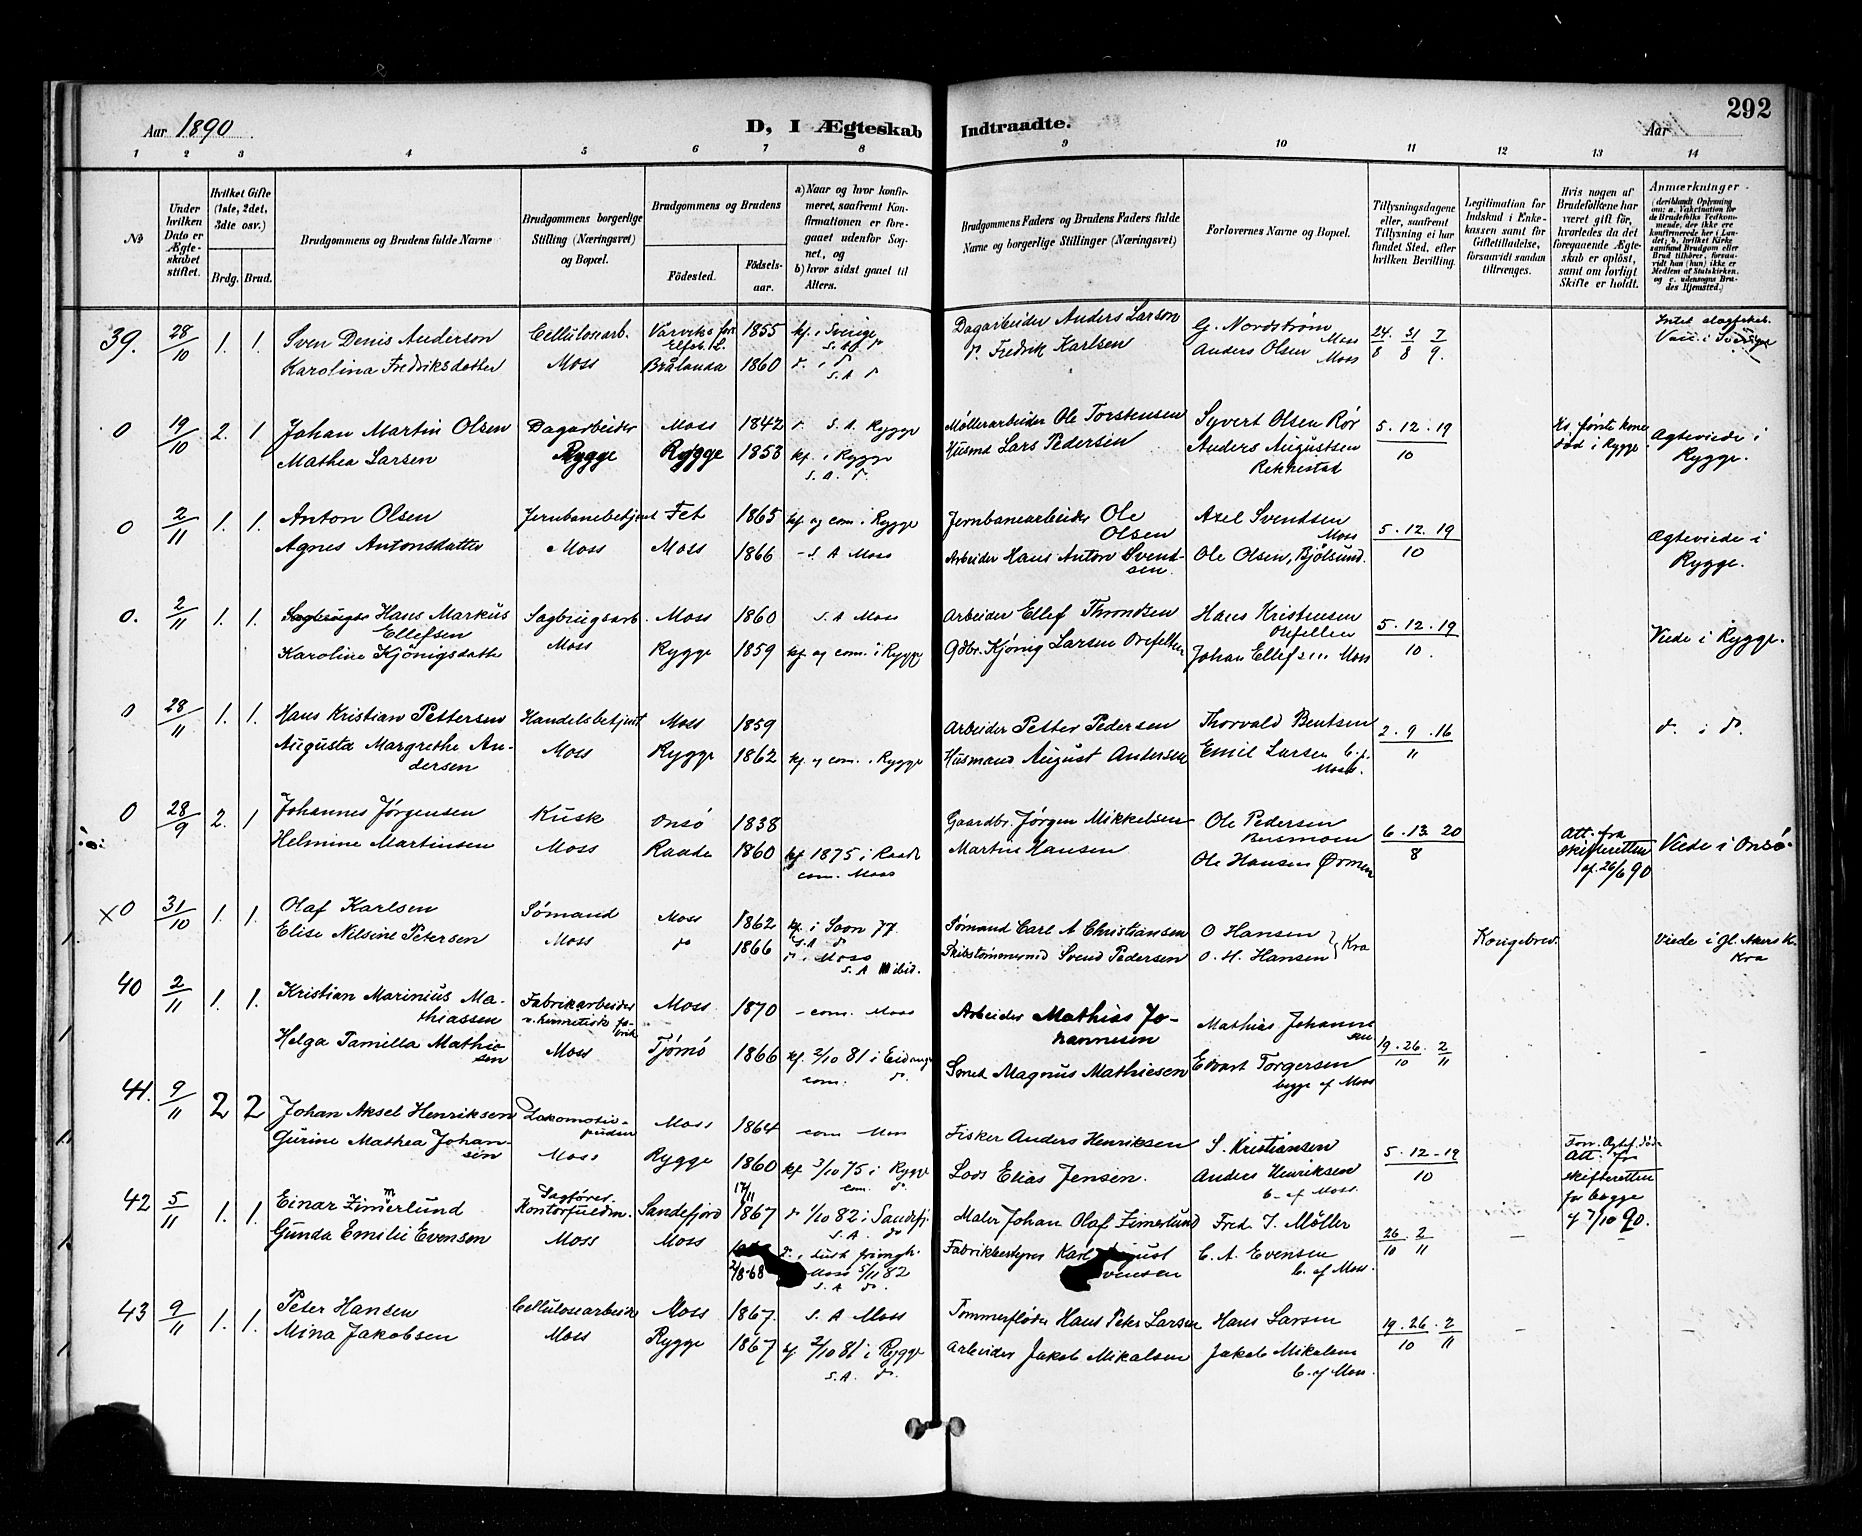 292
Aar 1890. D, I Ægteskab Indtraadte. Aar
1 2 3 4 5 6 7 8 9 10 11 12 13 14
No
Under hvilken Dato er Ægteskabet stiftet.
Hvilket Gifte (1ste, 2det, 3dte osv.)
Brdg. Brud.
Brudgommens og Brudens fulde Navne
Brudgommens borgerlige Stilling (Næringsvei) og Bopæl.
Brudgommens og Brudens
Födested. Födselsaar.
a) Naar og hvor konfirmeret, saafremt Konfirmationen er foregaaet udenfor Sognet, og
b) hvor sidst gaaet til Alters.
Brudgommens Faders og Brudens Faders fulde Navne og borgerlige Stillinger (Næringsvei)
Forlovernes Navne og Bopæl.
Tillysningsdagene eller, saafremt Tillysning ei har fundet Sted, efter hvilken Bevilling.
Legitimation for Indskud i Enkekassen samt for Giftetilladelse, forsaavidt saadan tiltrænges.
Hvis nogen af Brudefolkene har været gift för, hvorledes da det foregaaende Ægteskab er oplöst, samt om lovligt Skifte er holdt.
Anmærkninger.
39. 28/10 1. 1. Sven Denis Anderson Cellulosarb. 1855 kf. i Sverige Dagarbeider Anders Larson G. Nordstrøm Moss 24. 31 7
Karolina Fredriksdatter Moss Brålanda 1860 S.A. Fredrik Karlsen Anders Olsen Moss 8 8 9.
0 19/10 2. 1 Johan Martin Olsen Dagarbeider Moss 1842 S.A. Rygge Møllerarbeider Ole Torstensen Syvert Olsen Rør 5. 12. 19 første kone død i Rygge Ægteviede i Rygge.
Mathea Larsen Rygge Rygge 1853 kf. i Rygge S.A. Husmd Lars Pedersen Anders Augustsen Rekkestad 10
0 2/11 1. 1. Anton Olsen Jernbanebetjent Fet 1865 kf og com. i Rygge Jernbanearbeider Ole Olsen Axel Svendsen Moss 5. 12. 19 Ægteviede i Rygge.
Agnes Antonsdatter Moss Moss 1866 S.A Moss Arbeider Hans Anton Svendsen Ole Olsen, Bjølsund. 10
0. 2/11 1. 1. Hans Markus Ellefsen Sagbrugsarb. Moss 1860 S.A Moss Arbeider Ellef Throndsen Hans Kristensen 5. 12. 19 Viede i Rygge.
Karoline Kjönigsdatter Moss Rygge 1859 kf. og com. i Rygge Gdbr. Kjönig Larsen Johan Ellefsen Moss 10.
0 28/11 1. 1. Hans Kristian Pettersen Handelsbetjent Moss 1859 Arbeider Petter Pedersen Thorvald Bentsen 2. 9. 16
Augusta Margrethe Andersen Moss Rygge 1862 kf. og com. i Rygge Husmand August Andersen Emil Larsen Moss. 11
0 28/9 2. 1 Johannes Jørgensen Kusk Onsö 1838 Gaardbr. Jørgen Mikkelsen Ole Pedersen 6. 13 20 Att. fra skifteretten af 26/6 90 Viede i Onsö.
Helmine Martinsen Moss Raade 1860 kf 1875 i Raade com. Moss Martin Hansen Ole Hansen 8
x0 31/10 1. 1. Olaf Karlsen Sømand Moss 1862 77 Sømand Carl A Christiansen O Hansen Kra Kongebrev. Viede i gl. Akers K. Kra
Elise Nilsine Petersen Moss do 1866 i Moss S.A ibid. Skibstømmermd Svend Pedersen O. H. Hansen
40 2/11 1. 1. Kristian Marinius Mathiassen Fabrikarbeider Moss 1870 com. Moss Arbeider Mathias Johannesen Mathias Johannesen 19. 26. 2
Helga Tamilla Mathiesen Moss Tjømø 1866 kf. 2/10 81 i Eidanger com. do. Smed Magnus Mathiesen Edvart Torgersen begge af Moss 10 11
41. 9/11 2 2 Johan Aksel Henriksen Lokomotivpudser Moss 1864 com Moss Fisker Anders Henriksen S. Kristiansen 5. 12 - 19 Att. fra skifteretten for begge af 7/10 90.
Gurine Mathea Johansen Moss Rygge 1860 kf 3/10 75 i Rygge com. do. Lods Elias Jensen. Anders Henriksen b. af Moss. 10
42 5/11 1. 1. Einar Zimerlund Sagfører Kontorfuldm. Sandefjord 17/11 1867 do 1/10 82 i Sandefj. S.A. do Maler Johan Olaf Zimerlund Fred. J. Møller 26. 2
Gunda Emilie Evensen Moss Moss 2/8-68 Moss 5/11 82 S.A do. Fabrikbestyrer Karl August Evensen C. A. Evensen b. af Moss. 10 11
43 9/11 1. 1. Peter Hansen Cellulosearbeider Moss 1867. S.A Moss Tømmerfløder Hans Peter Larsen Hans Larsen 19. 26. 2
Mina Jakobsen Moss Rygge 1867 kf 2/10 81 i Rygge S.A. do. Arbeider Jakob Mikalsen Jakob Mikalsen b. af Moss. 10 11